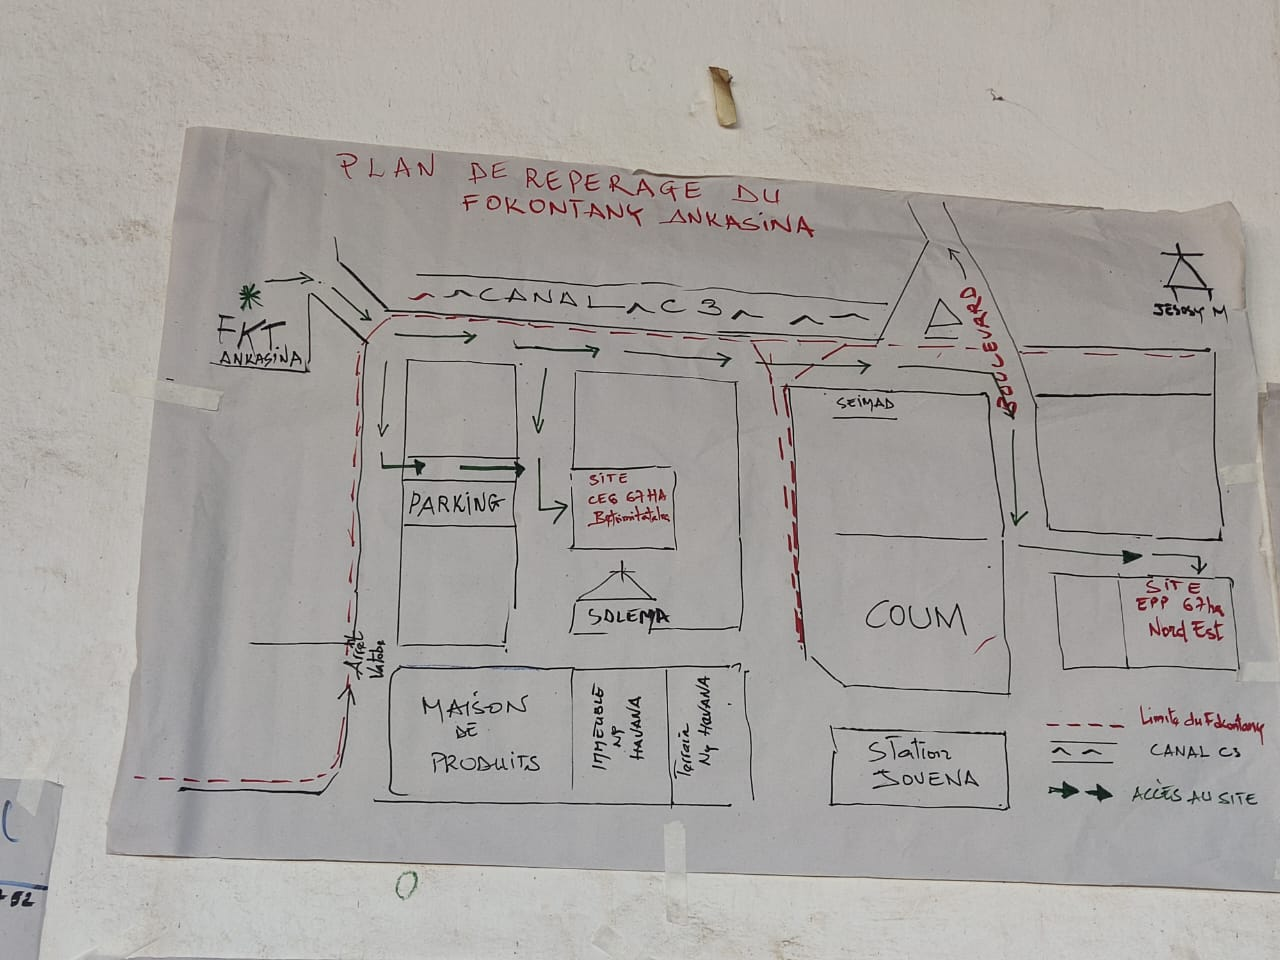 PLAN DE REPERAGE DU
FOKONTANY ANKASINA
CANAL C3
FKT
ANKASINA
BOULEVARD
JESOSY M
SEIMAD
PARKING
SITE
CEG 67HA
SOLEMA
COUM
SITE
EPP 67ha
Nord Est
Arrêt
MAISON
DE
PRODUITS
IMMEUBLE
NY
HAVANA
Terrain
NY HAVANA
Station
JOVENA
Limite du Fokontany
CANAL C3
ACCÈS AU SITE